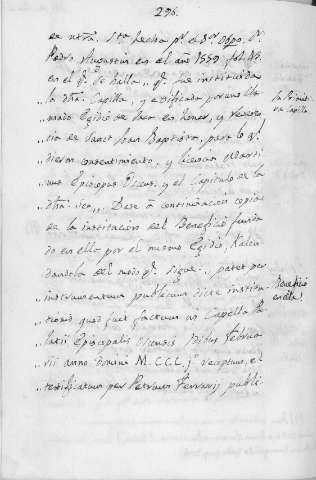 296.
en ntra. Sta. fecha pr. el Sor. Obpo. Dn.
Pedro Augustin en el año 1559, fol. 
en el qe. se halla „ qe. fue instituida
„ la dha. Capilla, y edificada por uno lla
„ mado Egidio de Jaca en honor, y reveren
„ tia de Sanct Joan Baptista, para lo ql.
„ dieron consentimiento, y licencia
Episcopus Oscens. y el Capitulo de la
„ dha. Seo „ Dize a continuacion copia
„ de la institucion del Beneficio funda
„ do en ella por el mismo Egidio,
dandola del modo qe. sigue „ patet per
„ instrumentum publicum dicte institu
„ tionis quod fuit factum in Capella Pa
„ latii Episcopalis Oscensis Idibus Februa
„ rii anno Domini M.CCC.L. receptum, et
„ testificatum per Petrum Ferrarij publi
la Primiti
va Capilla
Beneficio
en ella.